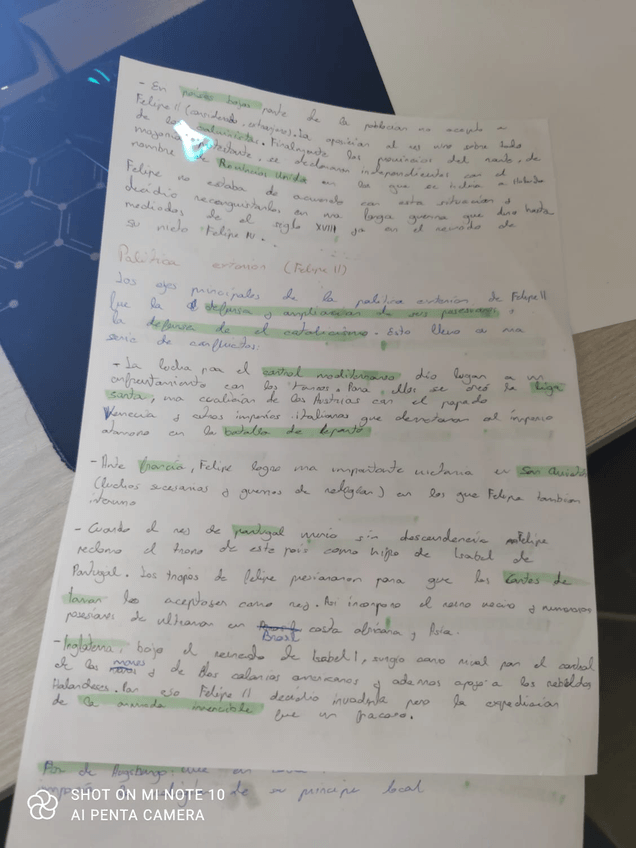 - En países bajos parte de la poblacion no acepto a
Felipe II (considerado extranjero). La oposición al rey vino sobre todo
de los calvinistas. Finalmente las provincias del norte, de
mayoria protestante, se declararon independientes con el
nombre de Provincias Unidas en las que
Felipe no estaba de acuerdo con esta situacion y
decidio reconquistarlas, en una larga guerra que duro hasta
mediados de el siglo XVIII ya en el reinado de
su nieto Felipe IV.
Politica exterior (Felipe II)
Los ejes principales de la politica exterior de Felipe II
fue la defensa y ampliacion de sus posesiones,
la defensa de el catolicismo. Esto llevo a una
serie de conflictos:
- La lucha por el control mediterraneo dio lugar a un
enfrentamiento con los turcos. Para ellos se creó la liga
santa, una coalicion de los Austrias con el papado
Venecia y otros imperios italianos que derrotaron al imperio
otomano en la batalla de lepanto
- Ante francia, Felipe logro una importante victoria en San
(luchas sucesorias y guerras de religion) en los que Felipe tambien
intervino
- Cuando el rey de portugal murio sin descendencia Felipe
reclamo el trono de este pais como hijo de Isabel de
Portugal. Las tropas de felipe presionaron para que las Cortes de
tomar lo aceptasen como rey. Asi incorporo el reino vecino y numerosas
posesiones de ultramar en Brasil costa africana y Asia.
- Inglaterra, bajo el reinado de Isabel I, surgio como rival por el control
de los mares y de las colonias americanas y ademas apoyó a los rebeldes
Holandeses. Por eso Felipe II decidio invadirla pero la expedicion
de la armada invencible fue un fracaso.
Paz de Augsburgo:
de su principe local
SHOT ON MI NOTE 10
AI PENTA CAMERA